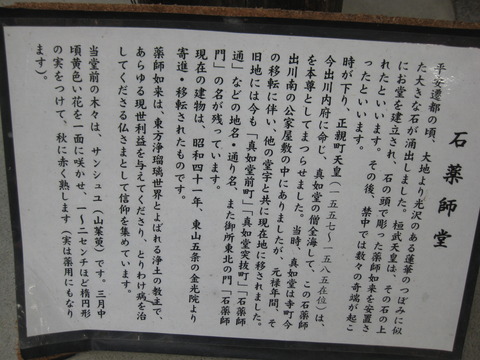 石薬師堂
平安遷都の頃、大地より光沢のある蓮華のつぼみに似
た大きな石が涌出しました。桓武天皇は、その石の上
にお堂を建立され、石の頭で彫った薬師如来を安置さ
れたといいます。その後、禁中では数々の奇端が起こ
ったといいます。
時が下り、正親町天皇（一五五七〜一五八五在位）は、
今出川内府に命じ、真如堂の僧全海して、この石薬師
を本尊としてまつらせました。当時、真如堂は寺町今
出川南の公家屋敷の中にありましたが、元禄年間、そ
の移転に伴い、他の堂宇と共に現在地に移されました。
旧地には今も「真如堂前町」「真如堂突抜町」「石薬師
通」などの地名・通り名、また御所東北の門「石薬師
門」の名が残っています。
現在の建物は、昭和四十一年、東山五条の金光院より
寄進・移転されたものです。
薬師如来は、東方浄瑠璃世界とよばれる浄土の教主で、
あらゆる現世利益を与えてくださり、とりわけ病を治
してくださる仏さまとして信仰を集めています。
当堂前の木々は、サンシュユ（山茱萸）です。三月中
頃黄色い花を一面に咲かせ、一〜二センチほど楕円形
の実をつけて、秋に赤く熟します（実は薬用にもなり
ます）。